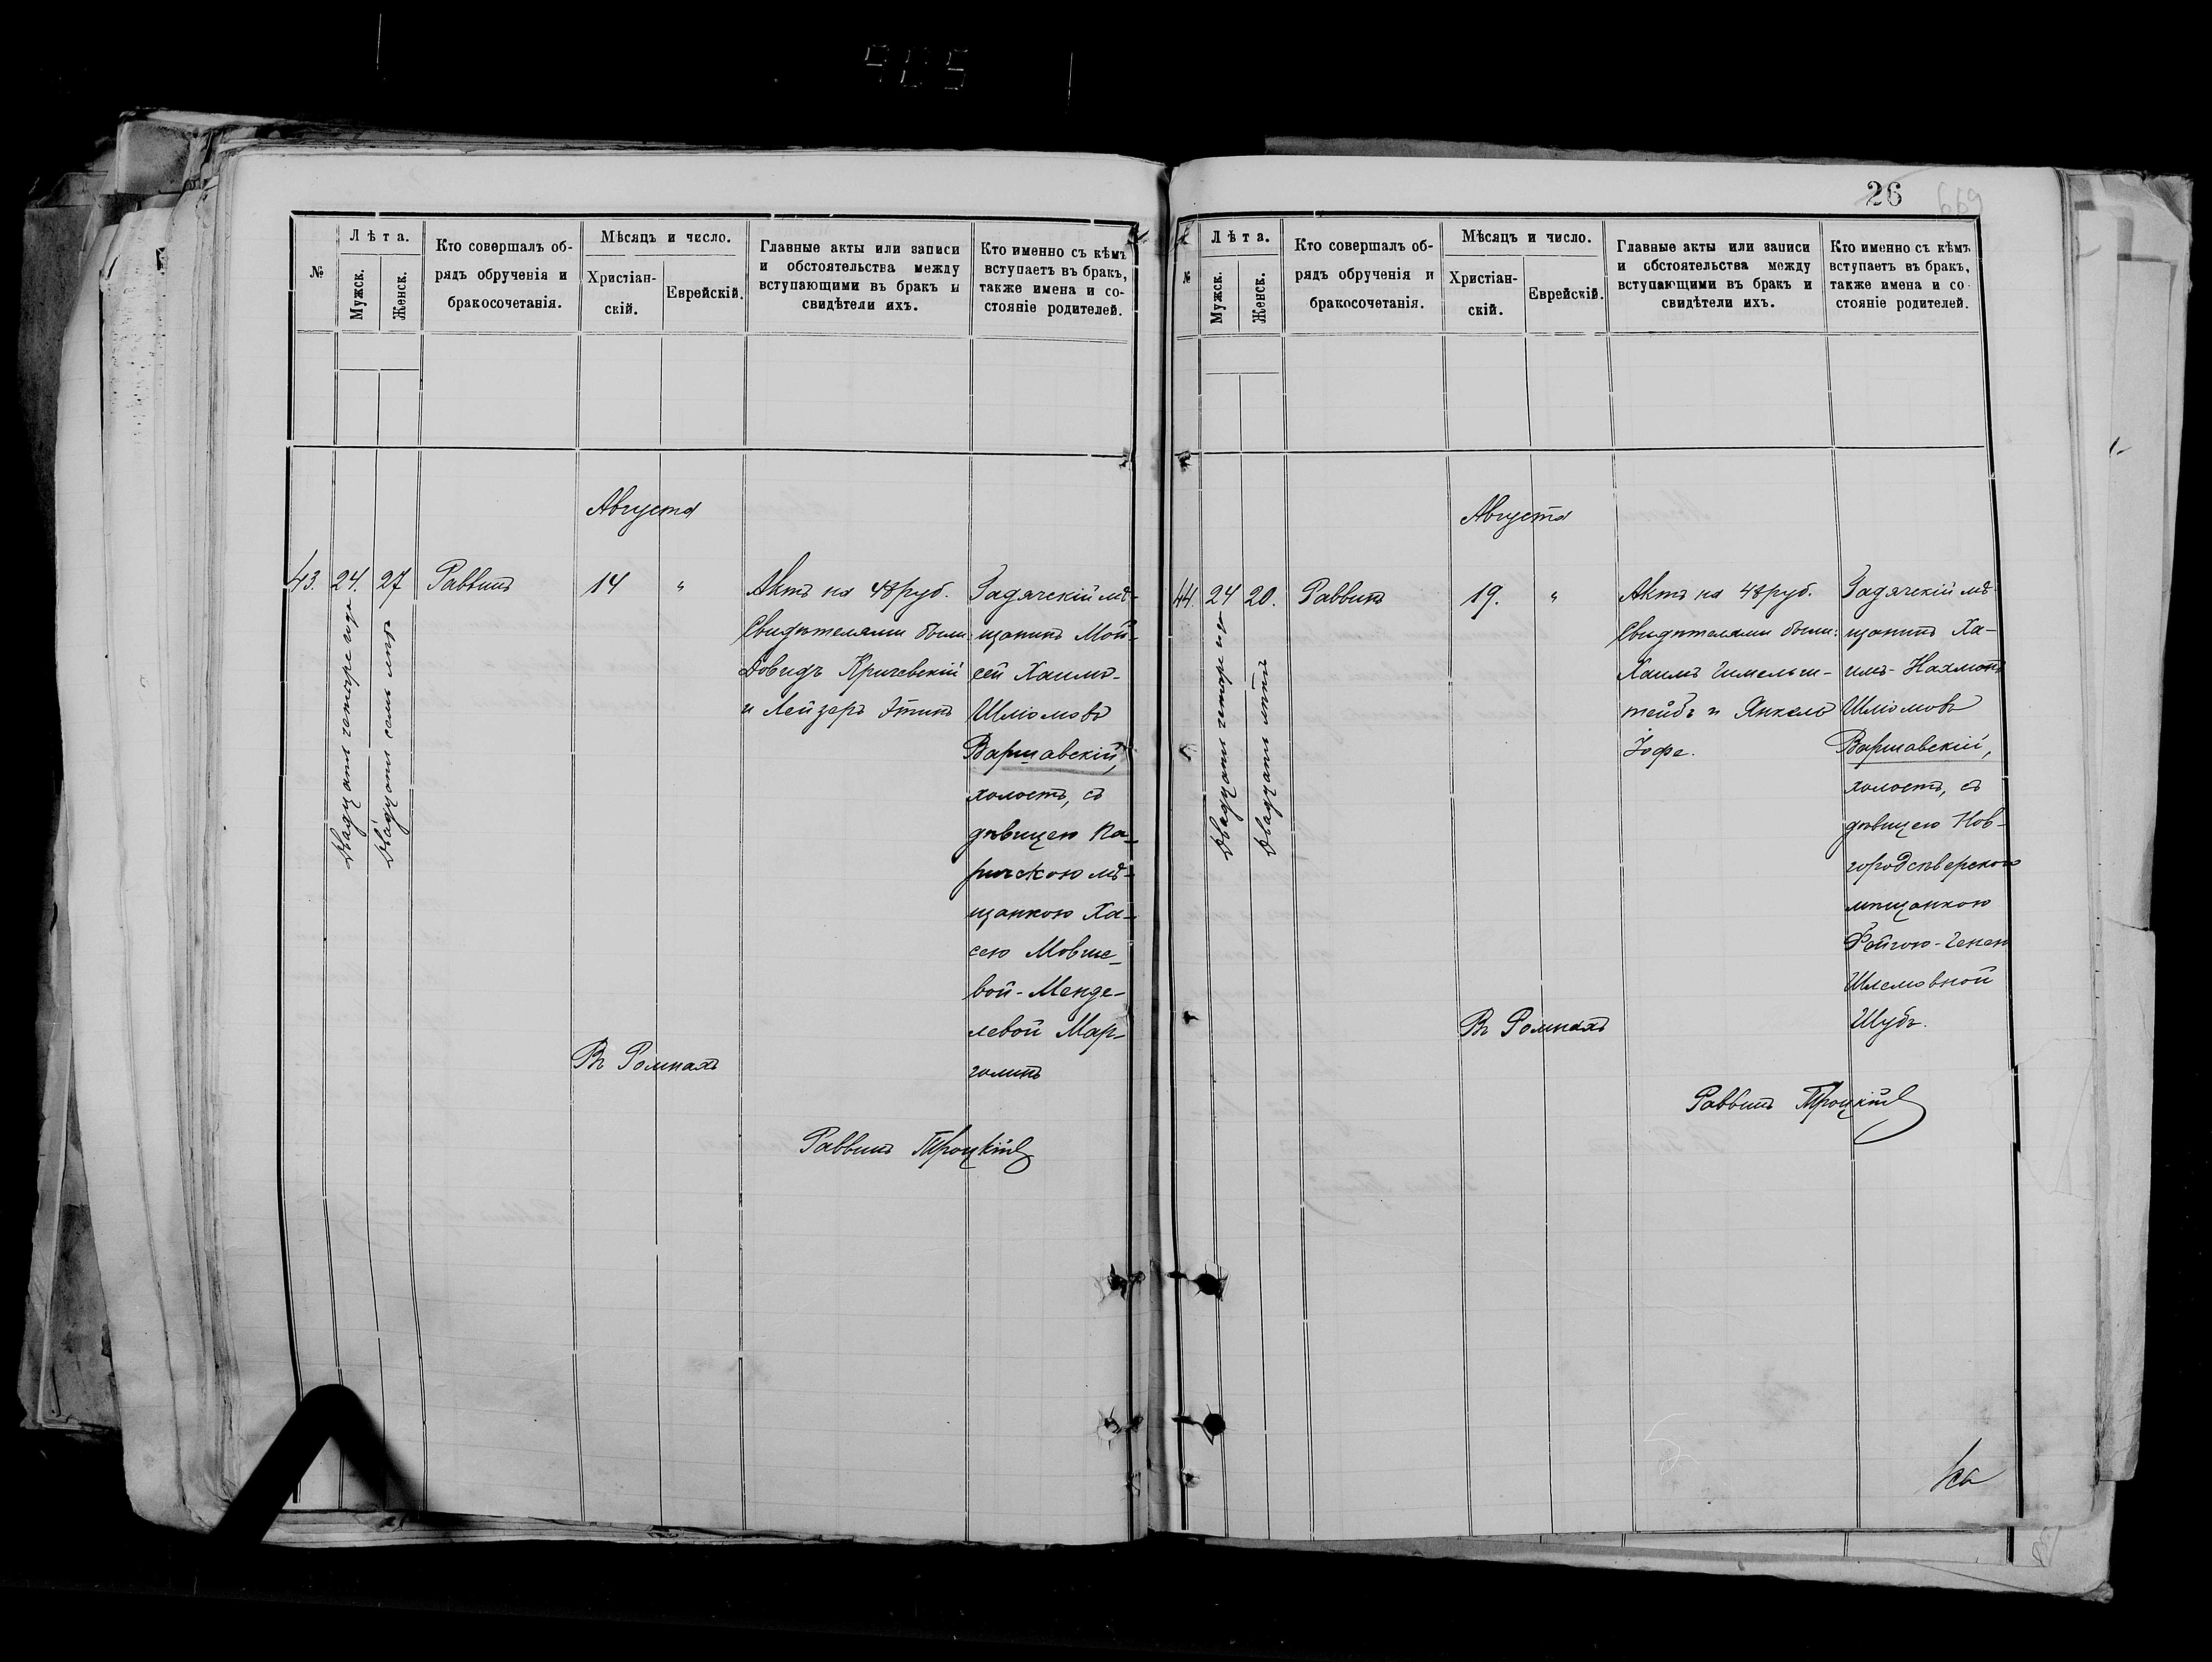 905
№
Лѣта.
Мужск.
Женск.
Кто совершалъ об-
рядъ обрученія и
бракосочетанія.
Мѣсяцъ и число.
Христіан-
скій.
Еврейскій.
Главные акты или записи
и обстоятельства между
вступающими въ бракъ и
свидѣтели ихъ.
Кто именно съ кѣмъ
вступаетъ въ бракъ,
также имена и со-
стояніе родителей.
Августа
43.
24.
Двадцать четыре года
27
Двадцать семь лѣтъ
Раввинъ
14
"
Актъ на 48 руб.
Свидѣтелями были:
Довидъ Кричевскій
и Лейзеръ Этинъ
Гадячскій мѣ-
щанинъ Мой-
сей Хаимъ-
Шліомовъ
Варшавскій,
холостъ, съ
дѣвицею Па-
ричскою мѣ-
щанкою Ха-
сею Мовше-
вой-Менде-
левой Мар-
голинъ
Въ Ромнахъ
Раввинъ Троцкій
26
669
№
Лѣта.
Мужск.
Женск.
Кто совершалъ об-
рядъ обрученія и
бракосочетанія.
Мѣсяцъ и число.
Христіан-
скій.
Еврейскій.
Главные акты или записи
и обстоятельства между
вступающими въ бракъ и
свидѣтели ихъ.
Кто именно съ кѣмъ
вступаетъ въ бракъ,
также имена и со-
стояніе родителей.
Августа
44.
24
Двадцать четыре года
20.
Двадцать лѣтъ
Раввинъ
19.
"
Актъ на 48 руб.
Свидѣтелями были:
Хаимъ Гимельш-
тейбъ и Янкель
Іофе.
Гадячскій мѣ-
щанинъ Ха-
имъ-Нахманъ
Шліомовъ
Варшавскій,
холостъ, съ
дѣвицею Нов-
городсѣверскою
мѣщанкою
Фейгою-Генею
Шлемовной
Шубъ.
Въ Ромнахъ
Раввинъ Троцкій